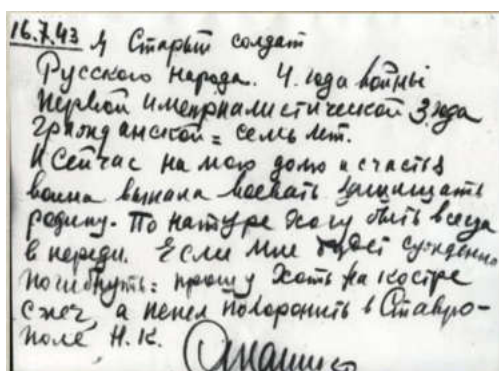 16.7.43 Я Старый солдат
Русского народа. 4. года войны
первой империалистической 3. года
гражданской = семь лет.
И сейчас на мою долю и счастья
воина выпала воевать защищать
родину. По натуре хочу быть всегда
в переди. Если мне будет сужденно
погибнуть = прошу хоть на костре
сжеч, а пепел похоронить в Ставро-
поле, Н.К.